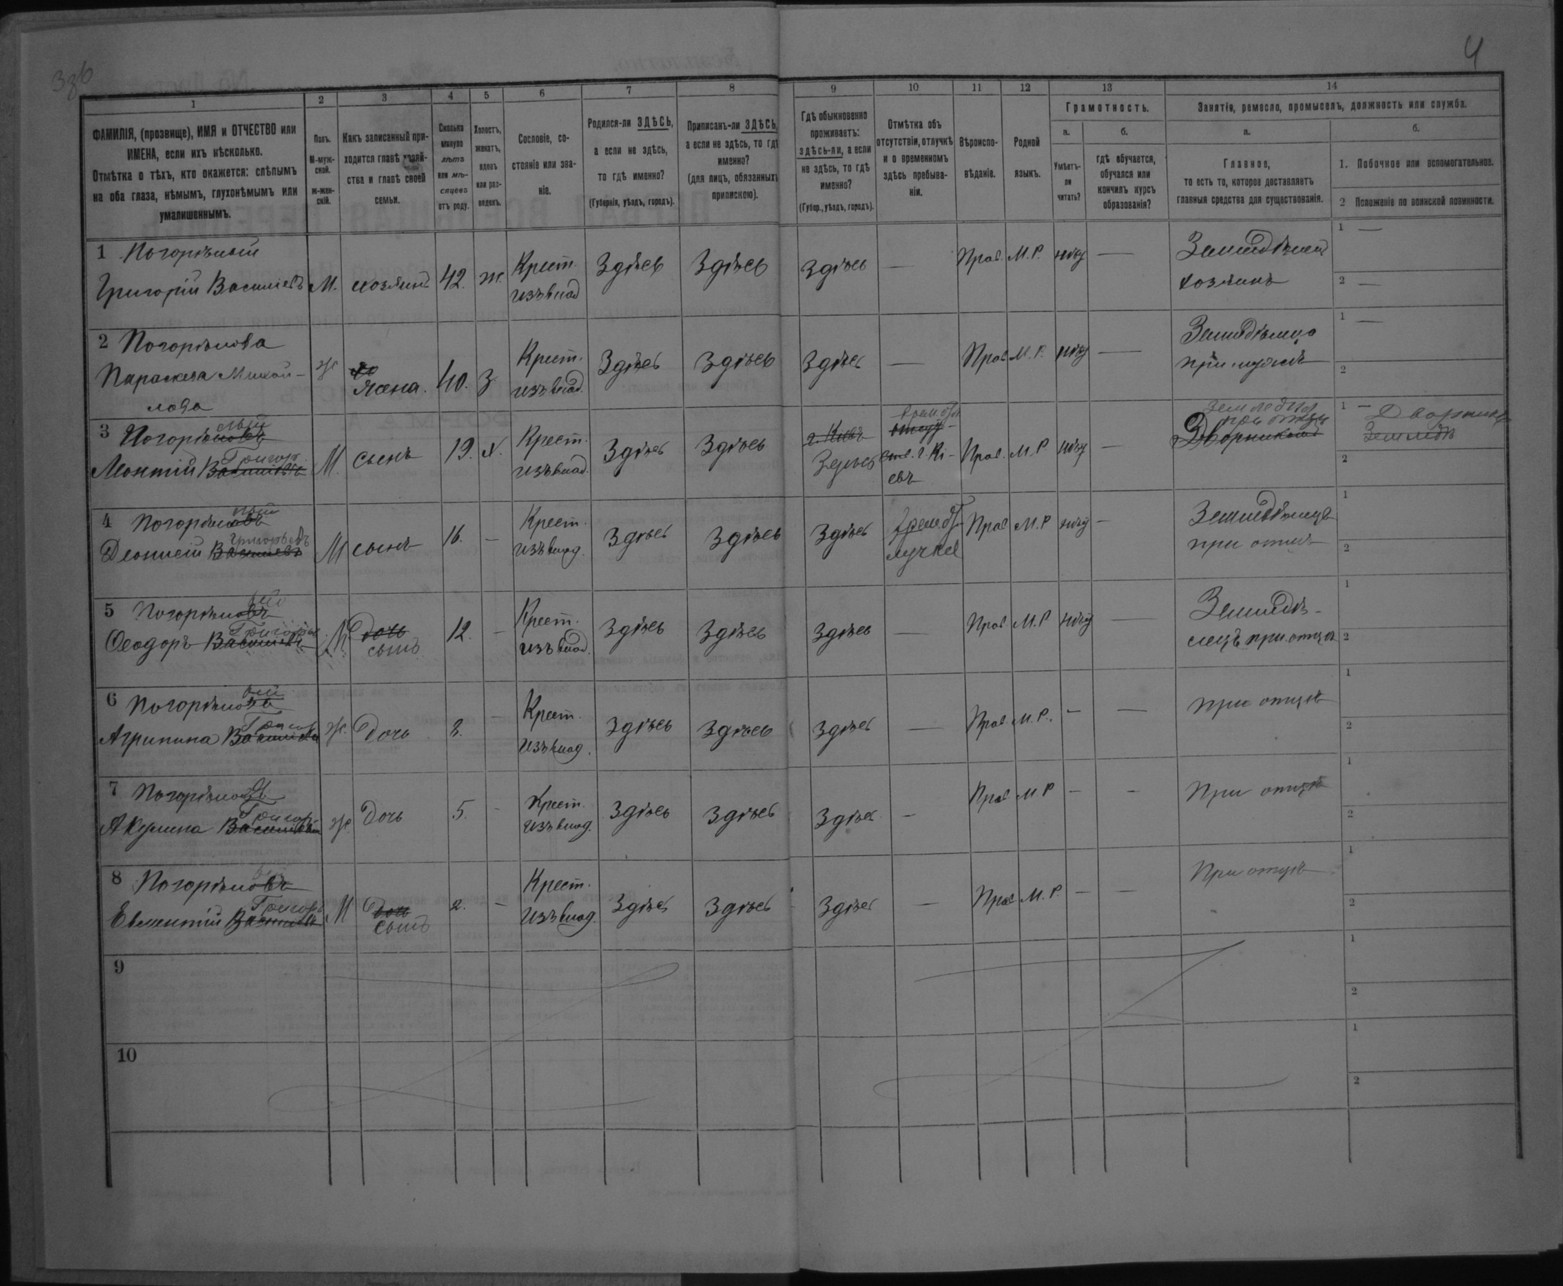 4
1
2
3
4
5
6
7
8
9
10
11
12
13
14
ФАМИЛІЯ, (прозвище), ИМЯ и ОТЧЕСТВО или
ИМЕНА, если ихъ нѣсколько.
Отмѣтка о тѣхъ, кто окажется: слѣпымъ
на оба глаза, нѣмымъ, глухонѣмымъ или
умалишеннымъ.
Полъ.
М-муж-
ской.
ж-жен-
скій.
Какъ записанный при-
ходится главѣ хозяй-
ства и главѣ своей
семьи.
Сколько
минуло
лѣтъ
или мѣ-
сяцевъ
отъ роду.
Холостъ,
женатъ,
вдовъ
или раз-
веденъ.
Сословіе, со-
стояніе или зва-
ніе.
Родился-ли ЗДѢСЬ,
а если не здѣсь,
то гдѣ именно?
(Губернія, уѣздъ, городъ).
Приписанъ-ли ЗДѢСЬ,
а если не здѣсь, то гдѣ
именно?
(для лицъ, обязанныхъ
припискою).
Гдѣ обыкновенно
проживаетъ:
здѣсь-ли, а если
не здѣсь, то гдѣ
именно?
(Губер., уѣздъ, городъ).
Отмѣтка объ
отсутствіи, отлучкѣ
и о временномъ
здѣсь пребыва-
ніи.
Вѣроиспо-
вѣданіе.
Родной
языкъ.
Грамотность.
а.
Умѣетъ-
ли
читать?
б.
гдѣ обучается,
обучался или
кончилъ курсъ
образованія?
Занятіе, ремесло, промыселъ, должность или служба.
а.
Главное,
то есть то, которое доставляетъ
главныя средства для существованія.
б.
1. Побочное или вспомогательное.
2 Положеніе по воинской повинности.
1 Погорѣлый
Григорій Васильевъ М. хозяинъ 42. ж. Крест. изъ влад. Здѣсь Здѣсь Здѣсь — Прав. М.Р. нѣтъ — Земледѣлецъ
хозяинъ
1 —
2 —
2 Погорѣлова
Параскева Михай-
лова ж жена. 40. З Крест. изъ влад. Здѣсь Здѣсь Здѣсь — Прав М.Р. нѣтъ — Земледѣлецъ
при мужѣ
1 —
2
3 Погорѣловъ лый
Леонтій Васильевъ Григор М. сынъ 19. Х. Крест. изъ влад Здѣсь Здѣсь г. Кіевъ Здѣсь г. Кі-
евъ Прав. М.Р нѣтъ — Дворникъ
при отцѣ
1 — Дворникъ
Земледѣ
2
4 Погорѣловъ лый
Діонисій Васильевъ Григорьевъ М сынъ 16. — Крест. изъ влад. Здѣсь Здѣсь Здѣсь
лучкѣ Прав. М.Р нѣтъ — Земледѣлецъ
при отцѣ
1
2
5 Погорѣловъ
Ѳеодоръ Васильевъ Григорьев М дочь сынъ 12. — Крест. изъ влад. Здѣсь Здѣсь Здѣсь — Прав М.Р нѣтъ — Земледѣ-
лецъ при отцѣ
1
2
6 Погорѣлова
Агрипина Васильева Григор ж. дочь 8. — Крест. изъ влад. Здѣсь Здѣсь Здѣсь — Прав М.Р. — — при отцѣ
1
2
7 Погорѣлова
Акулина Васильева Григор ж. дочь 5. — Крест. изъ влад. Здѣсь Здѣсь Здѣсь — Прав М Р — — При отцѣ
1
2
8 Погорѣловъ
Васильевъ Григор М дочь сынъ 2. — Крест. изъ влад. Здѣсь Здѣсь Здѣсь — Прав М.Р — — При отцѣ
1
2
9
1
2
10
1
2